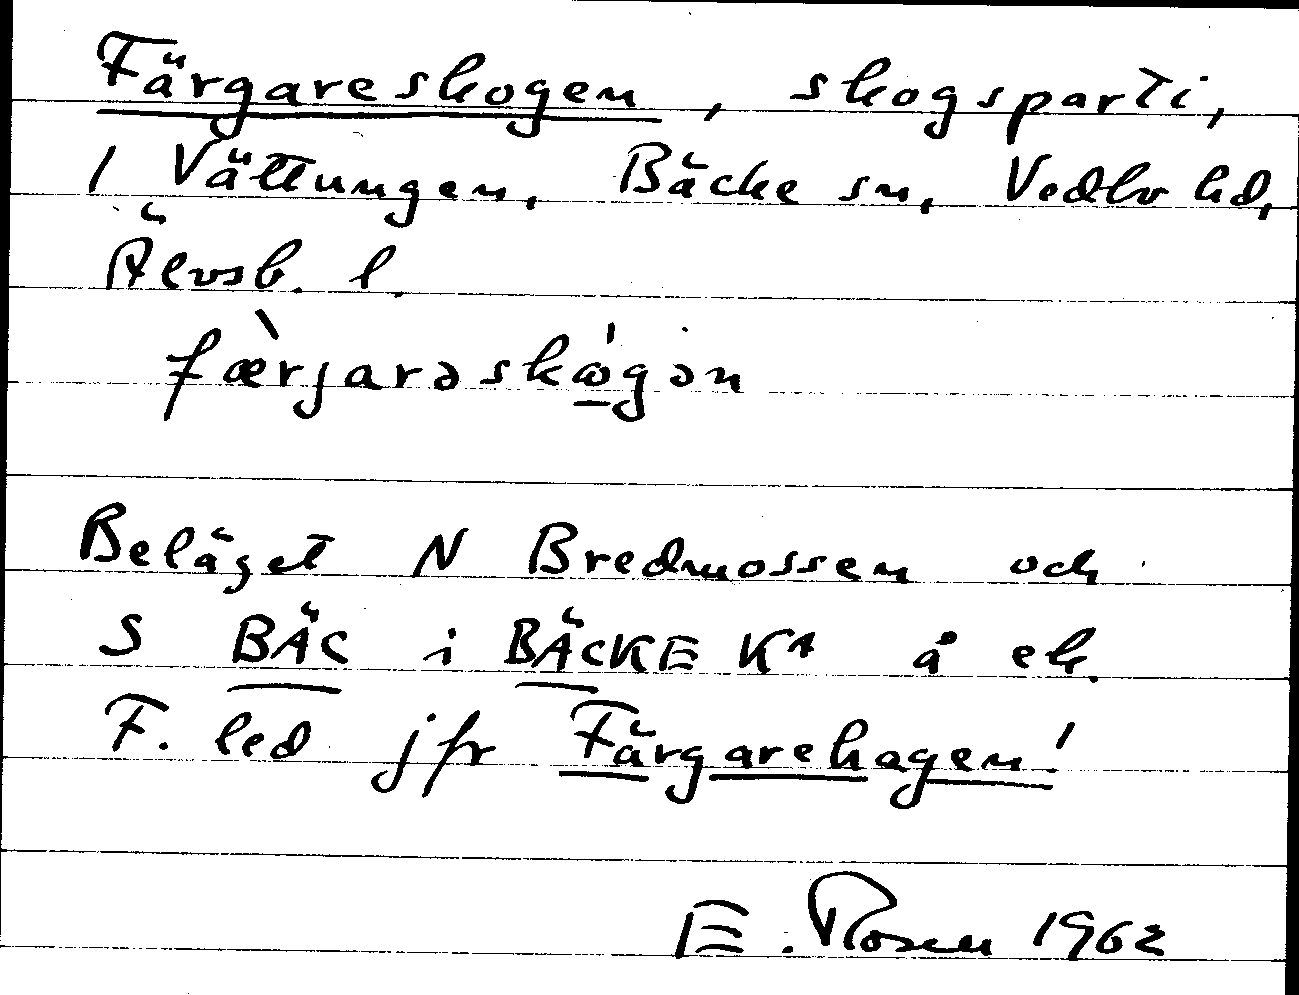 Färgareskogen, skogsparti,
/ Vättungen, Bäcke sn, Vedbo hd,
Älvsb. l.
fæ̀rjarəskώ̲gən
Beläget N Bredmossen och
S BÄC i BÄCKE KA å ek.
F. led jfr Färgarehagen!
E. Rosen 1962